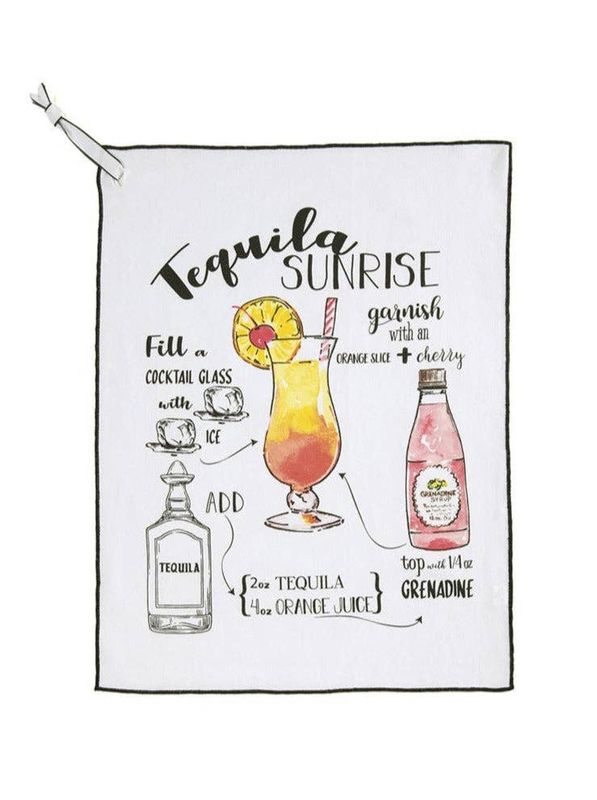 Tequila
SUNRISE
garnish
with an
ORANGE SLICE + cherry
Fill a
COCKTAIL GLASS
with
ICE
ADD
TEQUILA
{2oz TEQUILA
4oz ORANGE JUICE}
GRENADINE
SYRUP
top with 1/4 oz
GRENADINE